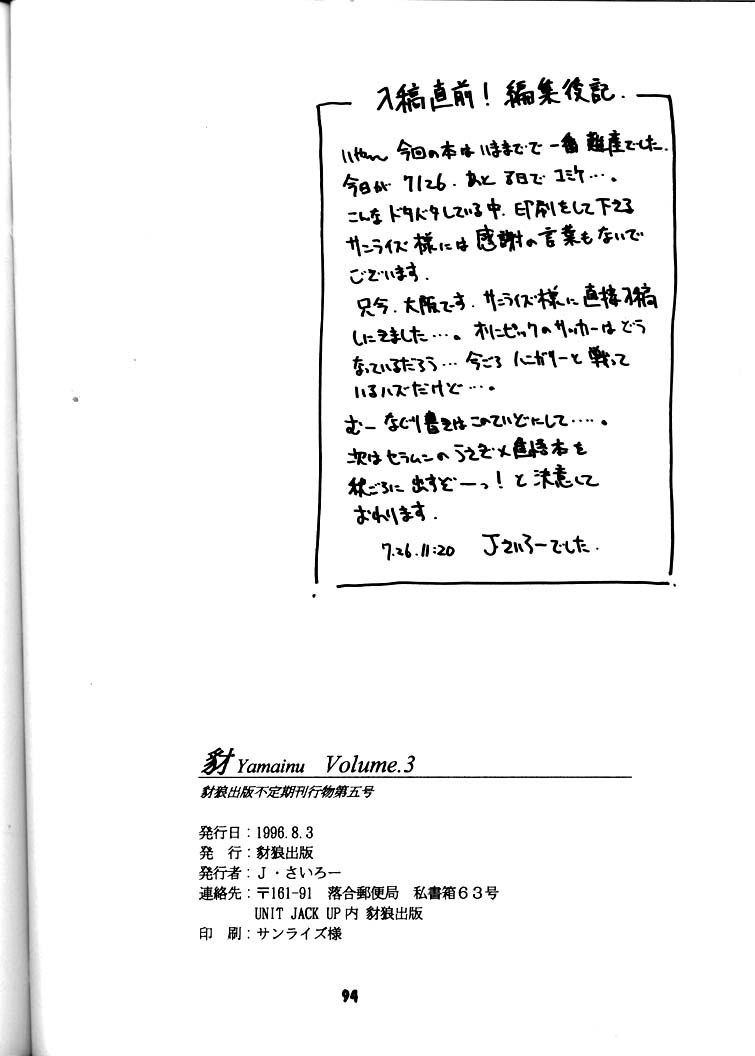 入稿直前!編集後記.
いやーん 今回の本は いままでで 一番 難産でした.
今日が 7/26. あと 8日で コミケ…。
こんな ドタバタしている中. 印刷をして下さる
サンライズ 様には 感謝の言葉もないで
ございます.
只今. 大阪でーす. サンライズ様に 直接入稿
しにきました…。オリンピックのサッカーは どう
なっているだろう… 今ごろ ハンガリーと戦って
いるハズだけど…。
むー なぐり書きは このていどにして…‥。
次は セラムンの うさぎ×本を
秋ごろに 出すぞーっ! と 決意して
おわります.
7.26.11:20 Jさいろーでした.
豺 Yamainu Volume.3
豺狼出版不定期刊行物第五号
発行日:1996.8.3
発 行:豺狼出版
発行者:J・さいろー
連絡先:〒161-91 落合郵便局 私書箱63号
UNIT JACK UP内 豺狼出版
印 刷:サンライズ様
94